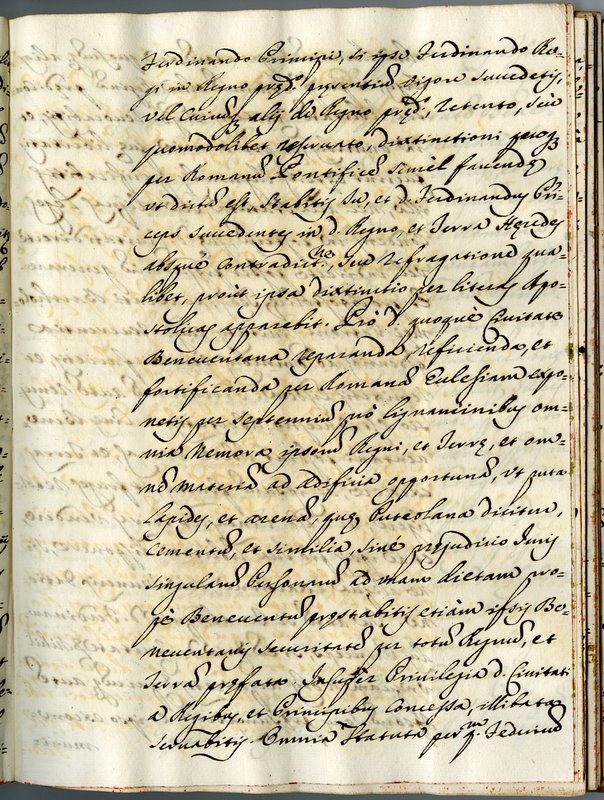 Ferdinando Principi, si ipse Ferdinando Re=
gi in Regno prędᵒ. presentiũ vigore succedetis,
vel cuiusq; alij de Regno prędᵒ, retento, seu
quomodolibet reseruato, distinctioni
per Romanũ Pontificẽ semèl faciendę
vt dictũ est, stabitis Tu, et d. Ferdinandus Prin=
ceps succedentes in d. Regno, et Terra Heredes
absquè contradictⁿᵉ, seu refragatione qua=
libet, proùt ipsa distinctio per literas Apo=
stolicas apparebit. Prò d. quoquè Ciuitate
Beneuentana reparanda, reficienda, et
fortificanda per Romanã Eclesiam expo=
netis per septenniũ prò lignaminibus om=
nia Nemora ipsorũ Regni, et Terrę, et om=
nẽ materiã ad ędificia opportunã, vt puta
Lapides, et arenã, quę Puteolana dicitur,
Cementũ, et similia, sinè pręjudicio Juris
singularũ Personarũ ad vnam dietam pro=
pè Beneuentũ pręstabitis etiàm ipsis Be=
neuentanis securitatẽ per totũ Regnũ, et
Terrã pręfatã. Insuper Priuilegia d. Ciuitati
a Regibus, et Principibus concessa, illibata
seruabitis. Omnia Statuta per qᵐ. Federicũ